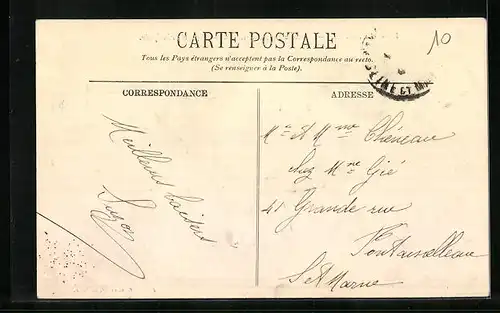 CARTE POSTALE
Tous les Pays étrangers n'acceptent pas la Correspondance au recto.
(Se renseigner à la Poste).
10
SEINE ET M
CORRESPONDANCE
Meilleurs baisers
ADRESSE
Mr et Mme Chéneau
chez Mme Gié
41 Grande rue
Fontainebleau
S et Marne